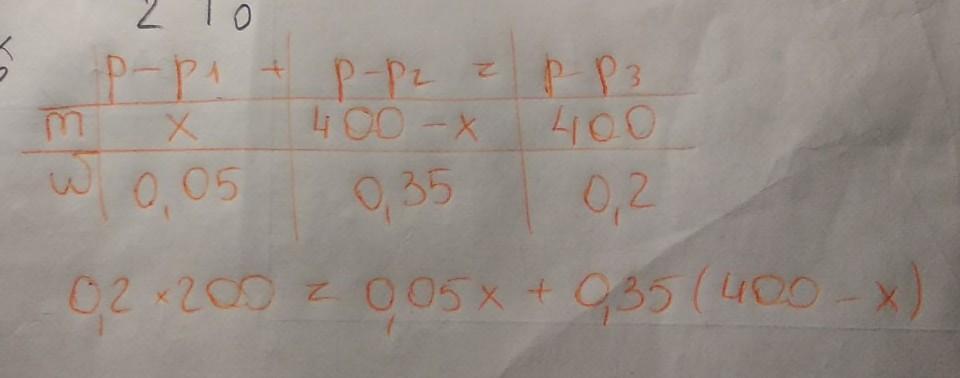 2 1 0
p-p1 + p-p2 = p-p3
m x 400-x 400
w 0,05 0,35 0,2
0,2 × 200 = 0,05x + 0,35(400-x)